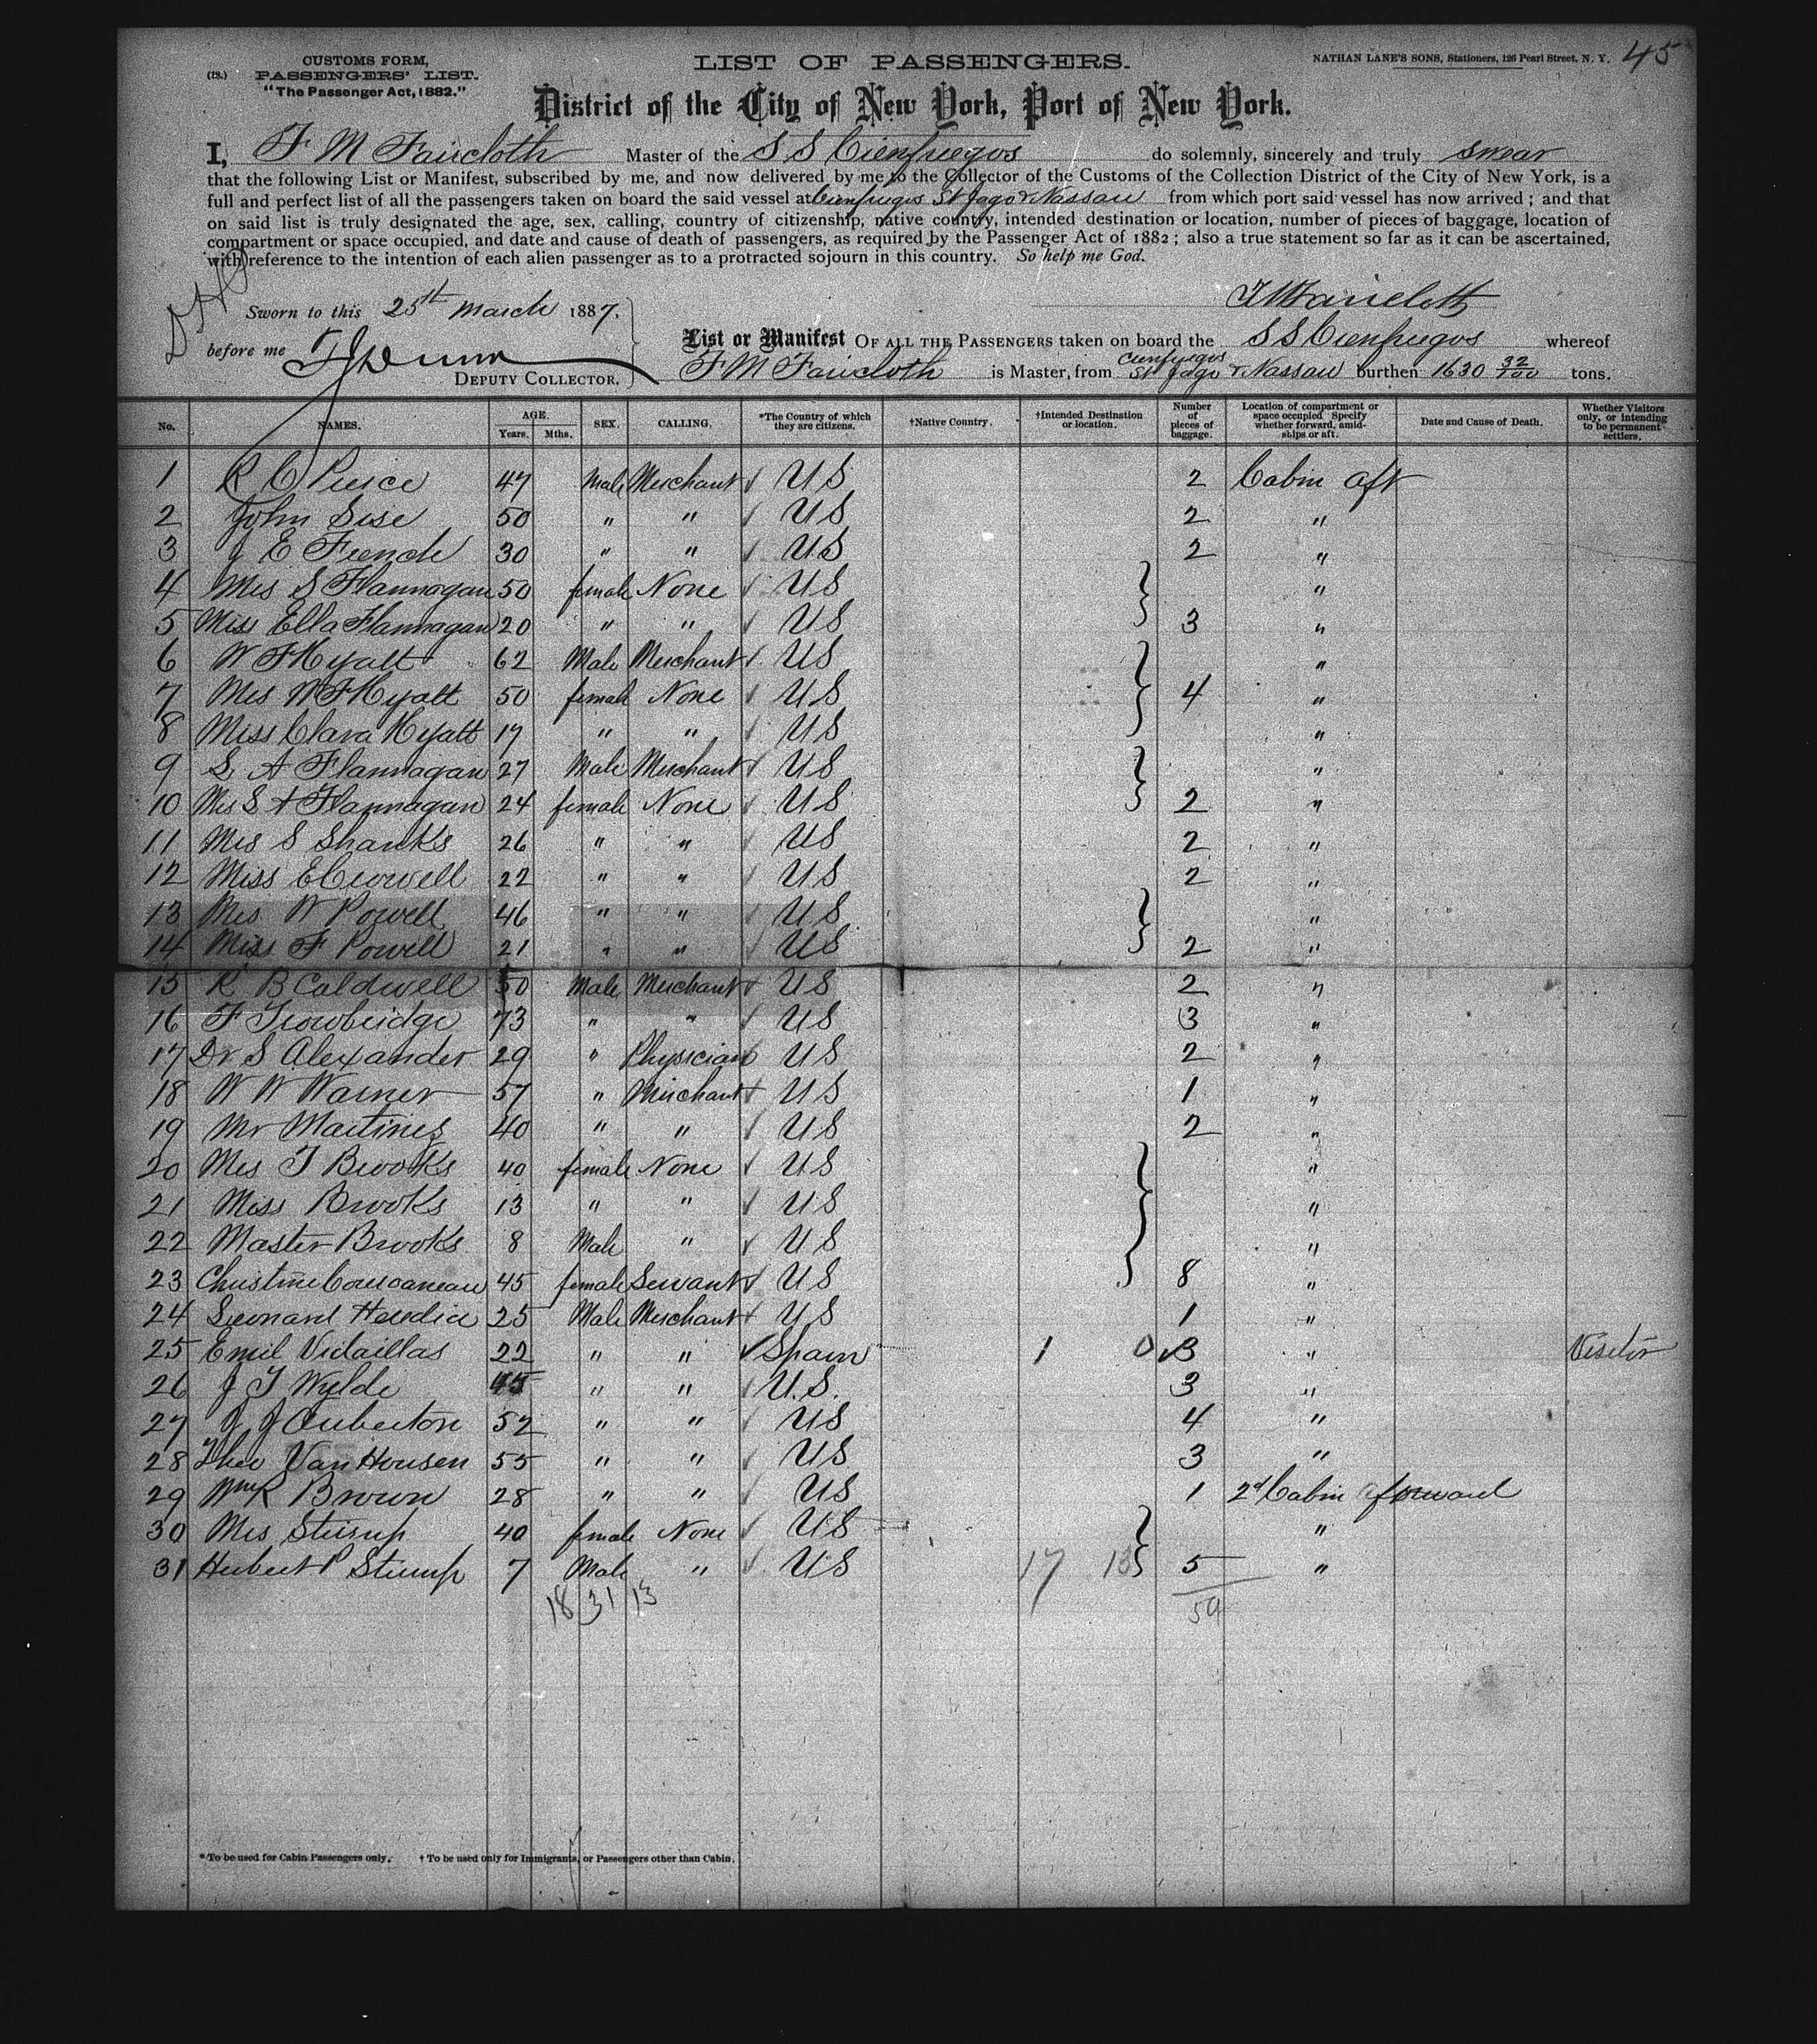 45
CUSTOMS FORM,
(18.) PASSENGERS' LIST.
"The Passenger Act, 1882."
LIST OF PASSENGERS.
NATHAN LANE'S SONS, Stationers, 126 Pearl Street, N. Y.
District of the City of New York, Port of New York.
I, F M Faircloth Master of the S S Cienfuegos do solemnly, sincerely and truly swear
that the following List or Manifest, subscribed by me, and now delivered by me to the Collector of the Customs of the Collection District of the City of New York, is a
full and perfect list of all the passengers taken on board the said vessel at Cienfuegos St Jago & Nassau from which port said vessel has now arrived; and that
on said list is truly designated the age, sex, calling, country of citizenship, native country, intended destination or location, number of pieces of baggage, location of
compartment or space occupied, and date and cause of death of passengers, as required by the Passenger Act of 1882; also a true statement so far as it can be ascertained,
with reference to the intention of each alien passenger as to a protracted sojourn in this country. So help me God.
F M Faircloth
Sworn to this 25th March 1887,
before me
DEPUTY COLLECTOR.
List or Manifest OF ALL THE PASSENGERS taken on board the S S Cienfuegos whereof
F M Faircloth is Master, from Cienfuegos St Jago & Nassau burthen 1630 32/100 tons.
No. NAMES. AGE. Years. Mths. SEX. CALLING. *The Country of which they are citizens. †Native Country. †Intended Destination or location. Number of pieces of baggage. Location of compartment or space occupied Specify whether forward, amidships or aft. Date and Cause of Death. Whether Visitors only, or intending to be permanent settlers.
1 R C Pierce 47 Male Merchant US 2 Cabin aft
2 John Sise 50 " " US 2 "
3 J E French 30 " " US 2 "
4 Mrs S Flannagan 50 female None US "
5 Miss Ella Flannagan 20 " " US 3 "
6 W F Hyatt 62 Male Merchant US "
7 Mrs W F Hyatt 50 female None US 4 "
8 Miss Clara Hyatt 17 " " US "
9 S A Flannagan 27 Male Merchant US "
10 Mrs S A Flannagan 24 female None US 2 "
11 Mrs S Shanks 26 " " US 2 "
12 Miss E Crowell 22 " " US 2 "
13 Mrs W Powell 46 " " US "
14 Miss F Powell 21 " " US 2 "
15 R B Caldwell 50 Male Merchant US 2 "
16 F Trowbridge 73 " " US 3 "
17 Dr S Alexander 29 " Physician US 2 "
18 W W Warner 57 " Merchant US 1 "
19 Mr Martines 40 " " US 2 "
20 Mrs T Brooks 40 female None US "
21 Miss Brooks 13 " " US "
22 Master Brooks 8 Male " US "
23 Christine 45 female Servant US 8 "
24 Leonard Heredia 25 Male Merchant US 1 "
25 Emil Vidaillas 22 " " Spain 1 0 3 " Visitor
26 J T Wylde 45 " " U.S. 3 "
27 J J Auberton 52 " " US 4 "
28 Theo Van Housen 55 " " US 3 "
29 Wm R Brown 28 " " US 1 2d Cabin forward
30 Mrs Stirrup 40 female None US "
31 Hubert P Stirrup 7 Male " US 17 13 5 "
18 31 13 59
* To be used for Cabin Passengers only. † To be used only for Immigrants, or Passengers other than Cabin.